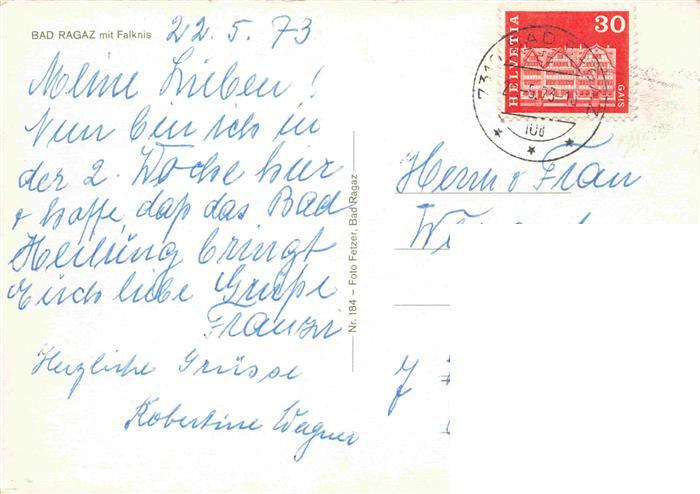 BAD RAGAZ mit Falknis
22.5.73
Meine Lieben!
Nun bin ich in
der 2. Woche hier
+ hoffe, daß das Bad
Heilung bringt
Euch liebe Grüße
Franzi
Herzliche Grüsse
Robertine Wagner
Nr. 184 – Foto Fetzer, Bad Ragaz
HELVETIA
30
GAIS
731
BAD
Herrn + Frau